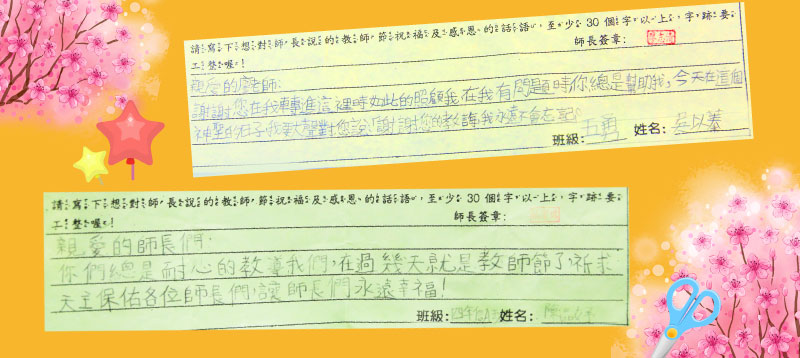 請寫下想對師長說的教師節祝福及感恩的話語，至少30個字以上，字跡要
工整喔！
師長簽章：
親愛的老師：
謝謝您在我轉進這裡時如此的照顧我，在我有問題時，你總是幫助我，今天在這個
神聖的日子我要大聲對您說：「謝謝您的教誨，我永遠不會忘記」
班級：五勇 姓名：吳以蓁
請寫下想對師長說的教師節祝福及感恩的話語，至少30個字以上，字跡要
工整喔！
師長簽章：
親愛的師長們：
你們總是耐心的教導我們，在過幾天就是教師節了，祈求
天主保佑各位師長們，讓師長們永遠幸福！
班級： 姓名：